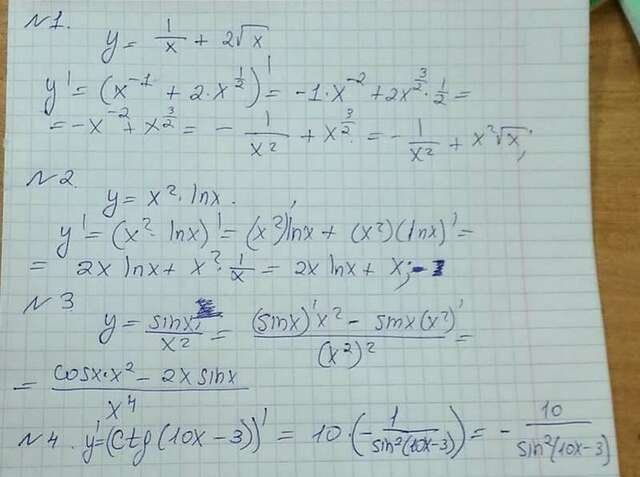 N1.
y = 1/x + 2√x
y' = (x^-1 + 2·x^1/2)' = -1·x^-2 + 2x^3/2·1/2 =
= -x^-2 + x^3/2 = - 1/x² + x^3/2 = - 1/x² + x²√x;
N2
y = x²·lnx.
y' = (x²·lnx)' = (x²)'lnx + (x²)(lnx)' =
= 2x lnx + x²·1/x = 2x lnx + x;
N3
y = sinx/x² = ((sinx)'x² - sinx(x²)')/(x²)² =
= (cosx·x² - 2x sinx)/x⁴
N4. y' = (ctg(10x-3))' = 10·(-1/sin²(10x-3)) = - 10/sin²(10x-3)